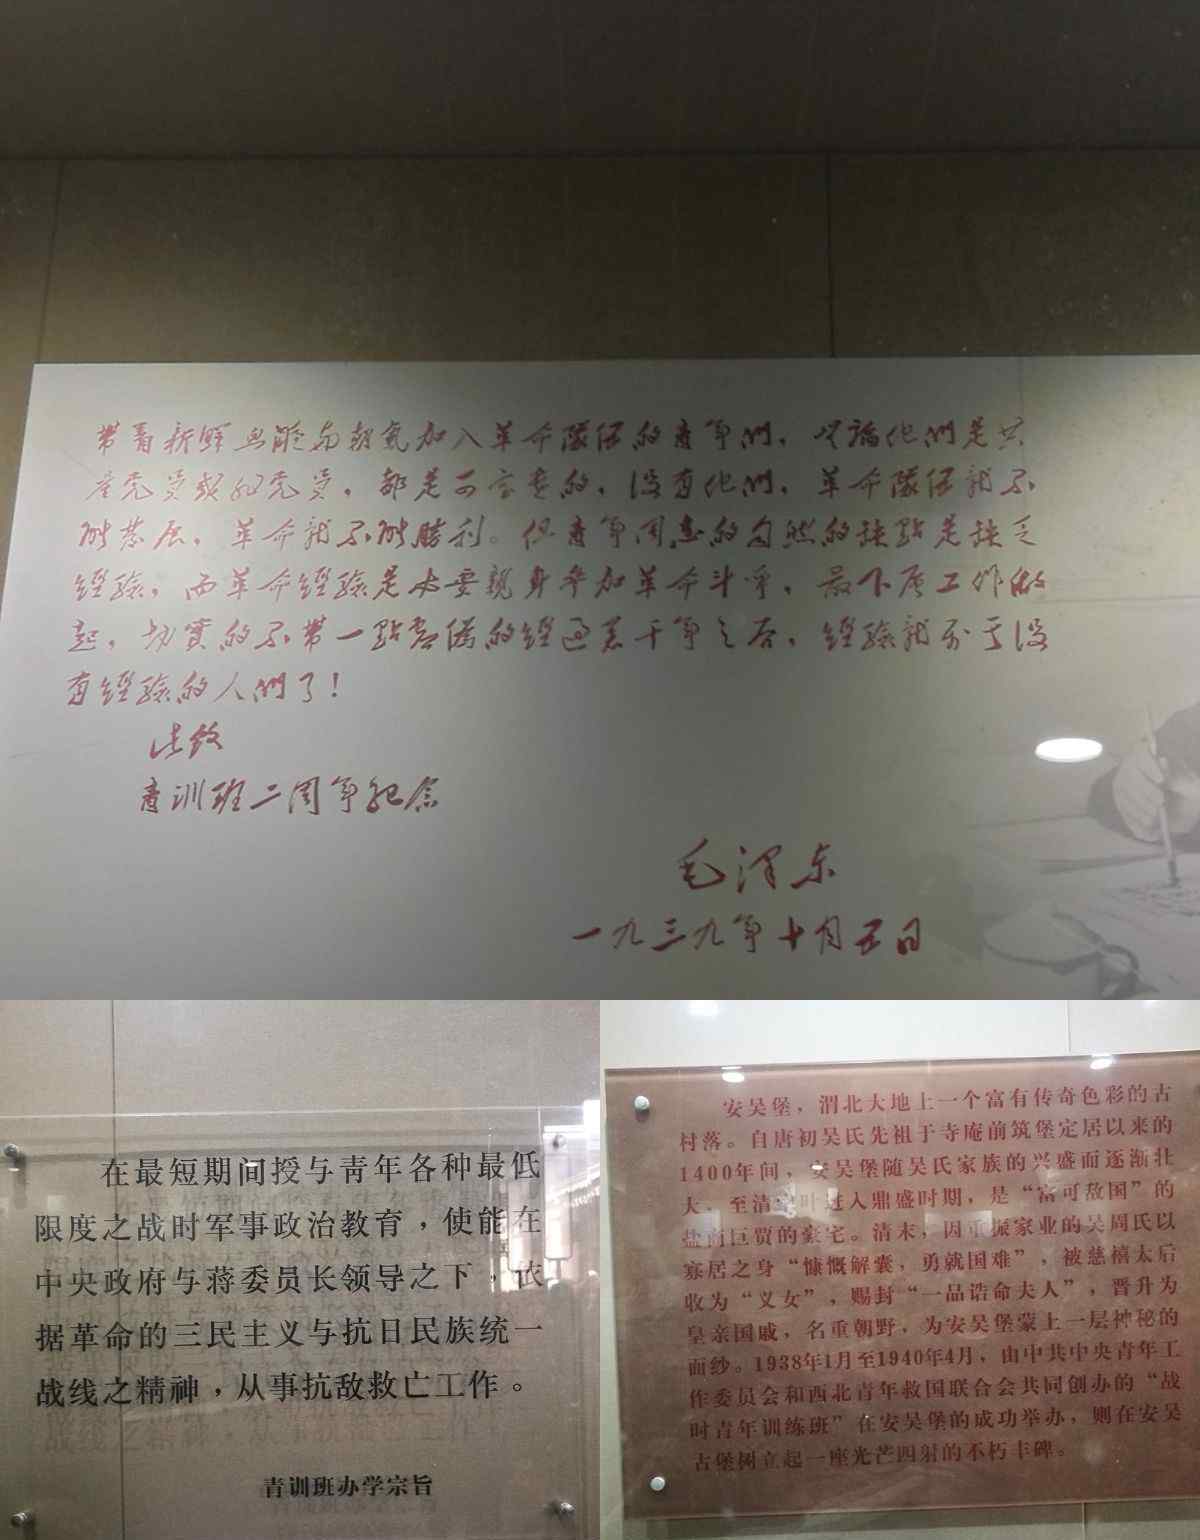 带着新鲜血液与朝气加入革命隊伍的青年們，無論他們是共
産党員或非党員，都是可宝贵的，没有他們，革命隊伍就不
能发展，革命就不能勝利。但青年同志的自然的缺點是缺乏
經驗，而革命經驗是必要親身参加革命斗争，最下层工作做
起，切實的不带一點虚僞的經过若干年之后，經驗就属于没
有經驗的人們了！
法致
青训班二周年纪念
毛泽东
一九三九年十月五日
在最短期间授与青年各种最低
限度之战时军事政治教育，使能在
中央政府与蒋委员长领导之下，依
据革命的三民主义与抗日民族统一
战线之精神，从事抗敌救亡工作。
青训班办学宗旨
安吴堡，渭北大地上一个富有传奇色彩的古
村落。自唐初吴氏先祖于寺庵前筑堡定居以来的
1400年间，安吴堡随吴氏家族的兴盛而逐渐壮
大，至清末时进入鼎盛时期，是“富可敌国”的
盐商巨贾的豪宅。清末，因重振家业的吴周氏以
寡居之身“慷慨解囊，勇就国难”，被慈禧太后
收为“义女”，赐封“一品诰命夫人”，晋升为
皇亲国戚，名重朝野，为安吴堡蒙上一层神秘的
面纱。1938年1月至1940年4月，由中共中央青年工
作委员会和西北青年救国联合会共同创办的“战
时青年训练班”在安吴堡的成功举办，则在安吴
古堡树立起一座光芒四射的不朽丰碑。